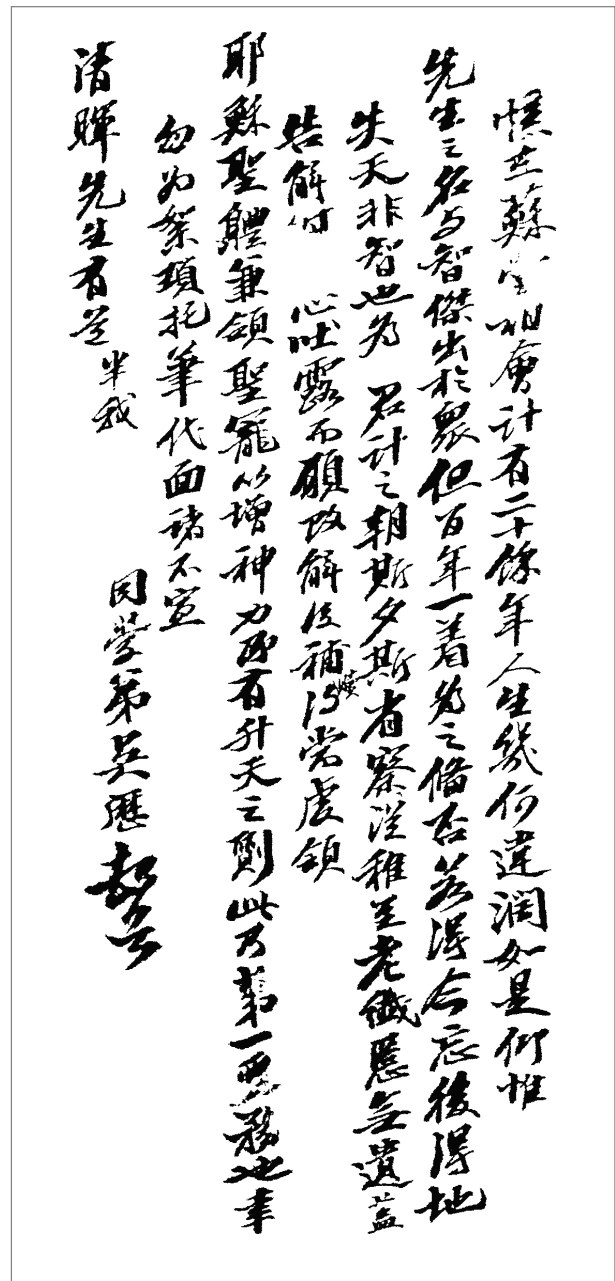 憶在蘇堂相會計有二十餘年人生幾何違濶如是仰惟
先生之名與智傑出於衆但百年一着為之備否若得今忘後得地
失天非智也為君計之朝斯夕斯省察從稚至老纖慝無遺蓋
告解時心吐露而願改解後補贖得當虔領
耶穌聖體兼領聖寵以增神力即有升天之劵此乃第一要務也幸
勿為絮瑣托筆代面諸不宣
清暉先生有道半我
同學弟吳歷頓首